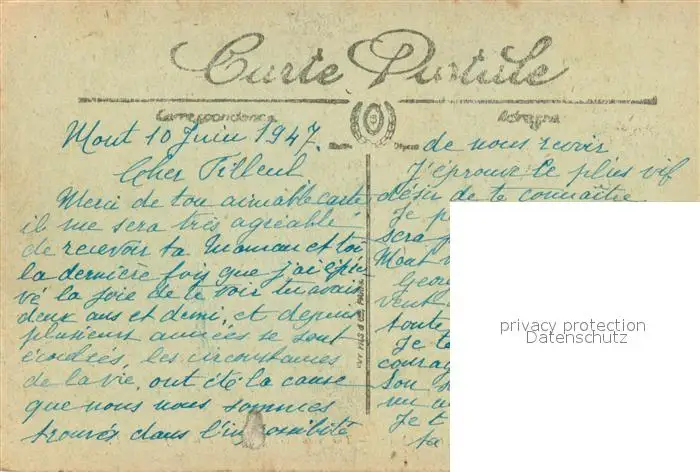 Carte Postale
Correspondance
Adresse
Mont 10 Juin 1947.
Cher Filleul
Merci de ton aimable carte
il me sera très agréable
de recevoir ta Maman et toi
la dernière fois que j'ai épróu
vé la joie de te voir tu avais
deux ans et demi, et depuis
plusieurs années se sont
écoulées, les circonstances
de la vie, ont été la cause
que nous nous sommes
trouvés dans l'impossibilité
de nous revoir
J'éprouve le plus vif
désir de te connaître
Je
sera
Mont
Geor
vent
toute
Je te
courag
Son
Je t
ta
privacy protection
Datenschutz